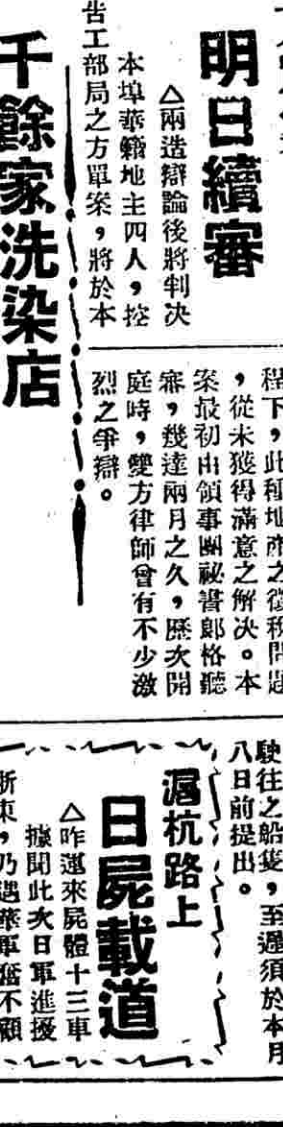 明日續審
△兩造辯論後將判决
本埠華籍地主四人，控
告工部局之方單案，將於本
千餘家洗染店
程下，此種地産之徵稅問題
，從未獲得滿意之解决。本
案最初由領事團祕書郎格聽
審，幾達兩月之久，歷次開
庭時，雙方律師曾有不少激
烈之爭辯。
駛往之船隻，至遲須於本月
八日前提出。
滬杭路上
日屍載道
△昨運來屍體十三車
據聞此次日軍進擾
浙東，乃遇華軍奮不顧